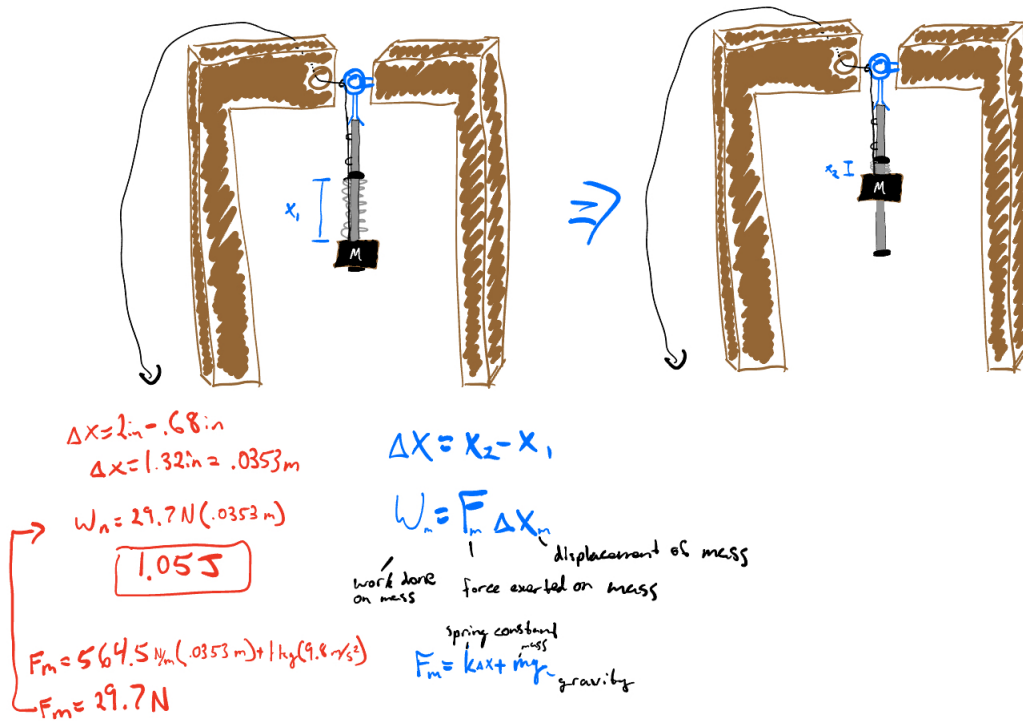 x₁
M
x₂
M
Δx=2in-.68in
Δx=1.32in=.0353m
Wₙ=29.7N(.0353m)
1.05J
Fₘ=564.5 N/m(.0353m)+1kg(9.8m/s²)
Fₘ=29.7N
Δx=x₂-x₁
Wₘ=FₘΔxₘ
displacement of mass
work done
on mass
force exerted on mass
spring constant
mass
Fₘ=kΔx+mg
gravity